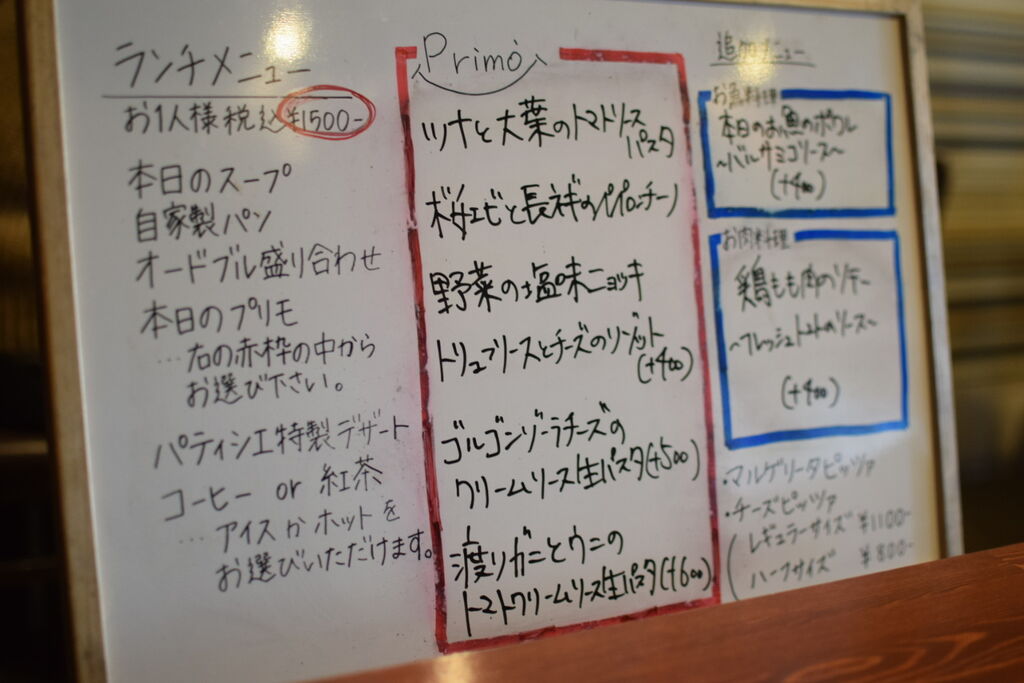 ランチメニュー
お1人様 税込¥1500-
本日のスープ
自家製パン
オードブル盛り合わせ
本日のプリモ
…右の赤枠の中から
お選び下さい。
パティシエ特製デザート
コーヒー or 紅茶
…アイスかホットを
お選びいただけます。
Primo
ツナと大葉のトマトソース
パスタ
桜エビと長ネギのペペロンチーノ
野菜の塩味ニョッキ
トリュフソースとチーズのリゾット
(+400)
ゴルゴンゾーラチーズの
クリームソース生パスタ(+500)
渡りガニとウニの
トマトクリームソース生パスタ(+600)
追加メニュー
お魚料理
本日のお魚のポワレ
~バルサミコソース~
(+400)
お肉料理
鶏もも肉のソテー
~フレッシュトマトのソース~
(+400)
・マルゲリータピッツァ
・チーズピッツァ
レギュラーサイズ ¥1100-
ハーフサイズ ¥800-